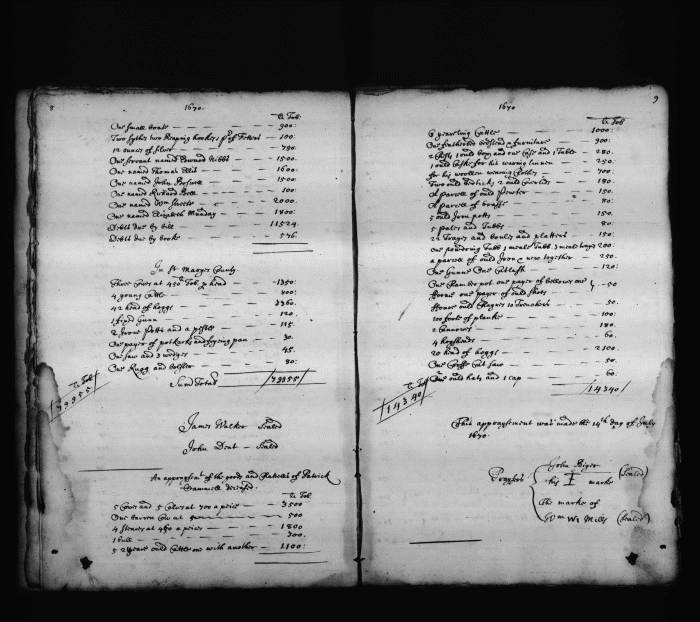 8
1670.
li Tob:
One small boate — 900:
Two sythes two Reaping hookes pr of Fetters — 100:
12 ounces of Silver — 790.
One servant named Edward Gibbs — 1500:
One named Thomas Ellit — 1600:
One named John — 1500
One named Richard — 100:
One named Wm — 2000.
One named Elizabeth Munday — 1800:
Debts due by bill — 11524.
Debts due by booke — 576.
In St Maryes County.
Three Cowes at 450 Tob p head — 1350:
4 young Cattle — 800:
42 head of hoggs — 3360.
1 fixed Gunn — 120.
2 Iron Potts and a pestle — 115.
One payer of pothookes and frying pan — 30.
One saw and 3 wedges — 45.
One Rugg and bolster — 80:
Sum Totall
James Walker Sealed
John Dent — Sealed
An appraysmt of the goods and Chattells of Patrick
deceased.
li Tob:
5 Cowes and 5 Calves at 700 a peice — 3500
One barren Cow at — 500
4 Steares at 450 a peice — 1800
1 bull — 300.
5 2 yeare ould Cattle one with another — 2100:
9
1670
li Tob
6 yeareling Cattle — 1000:
One featherbed bedstead & furniture — 900:
2 Chists 1 ould box and one Case and 1 Table — 280.
1 ould Caske for his wearing linnen — 250.
for his woollen wearing Clothes — 700:
Two ould bedticks 2 ould Coverlids — 180:
A parcell of ould Pewter — 150.
A parcell of brasse — 80:
5 ould Iron potts — 150.
5 pales and Tubbs — 80:
22 Trayes and boules and platters — 150:
one powdring Tubb 1 meale Tubb 3 meale trays 200:
a parcell of ould Iron & new together — 250.
One Gunne One Cutlash — 120:
One Chamber pot one payer of bellowes one } 50:
one payer of ould
ould 10 Trenchers — 50.
100 foote of planke — 100:
2 Cannowes — 180.
4 hogsheads — 60:
20 head of hoggs — 2100.
One Crosse Cut saw — 50.
One ould hatt and 1 cap — 60:
li Tob
14340
14340
This appraysement was made the 14th day of July
1670.
John
his I marke (sealed)
The marke of
Wm WM Mills (sealed)